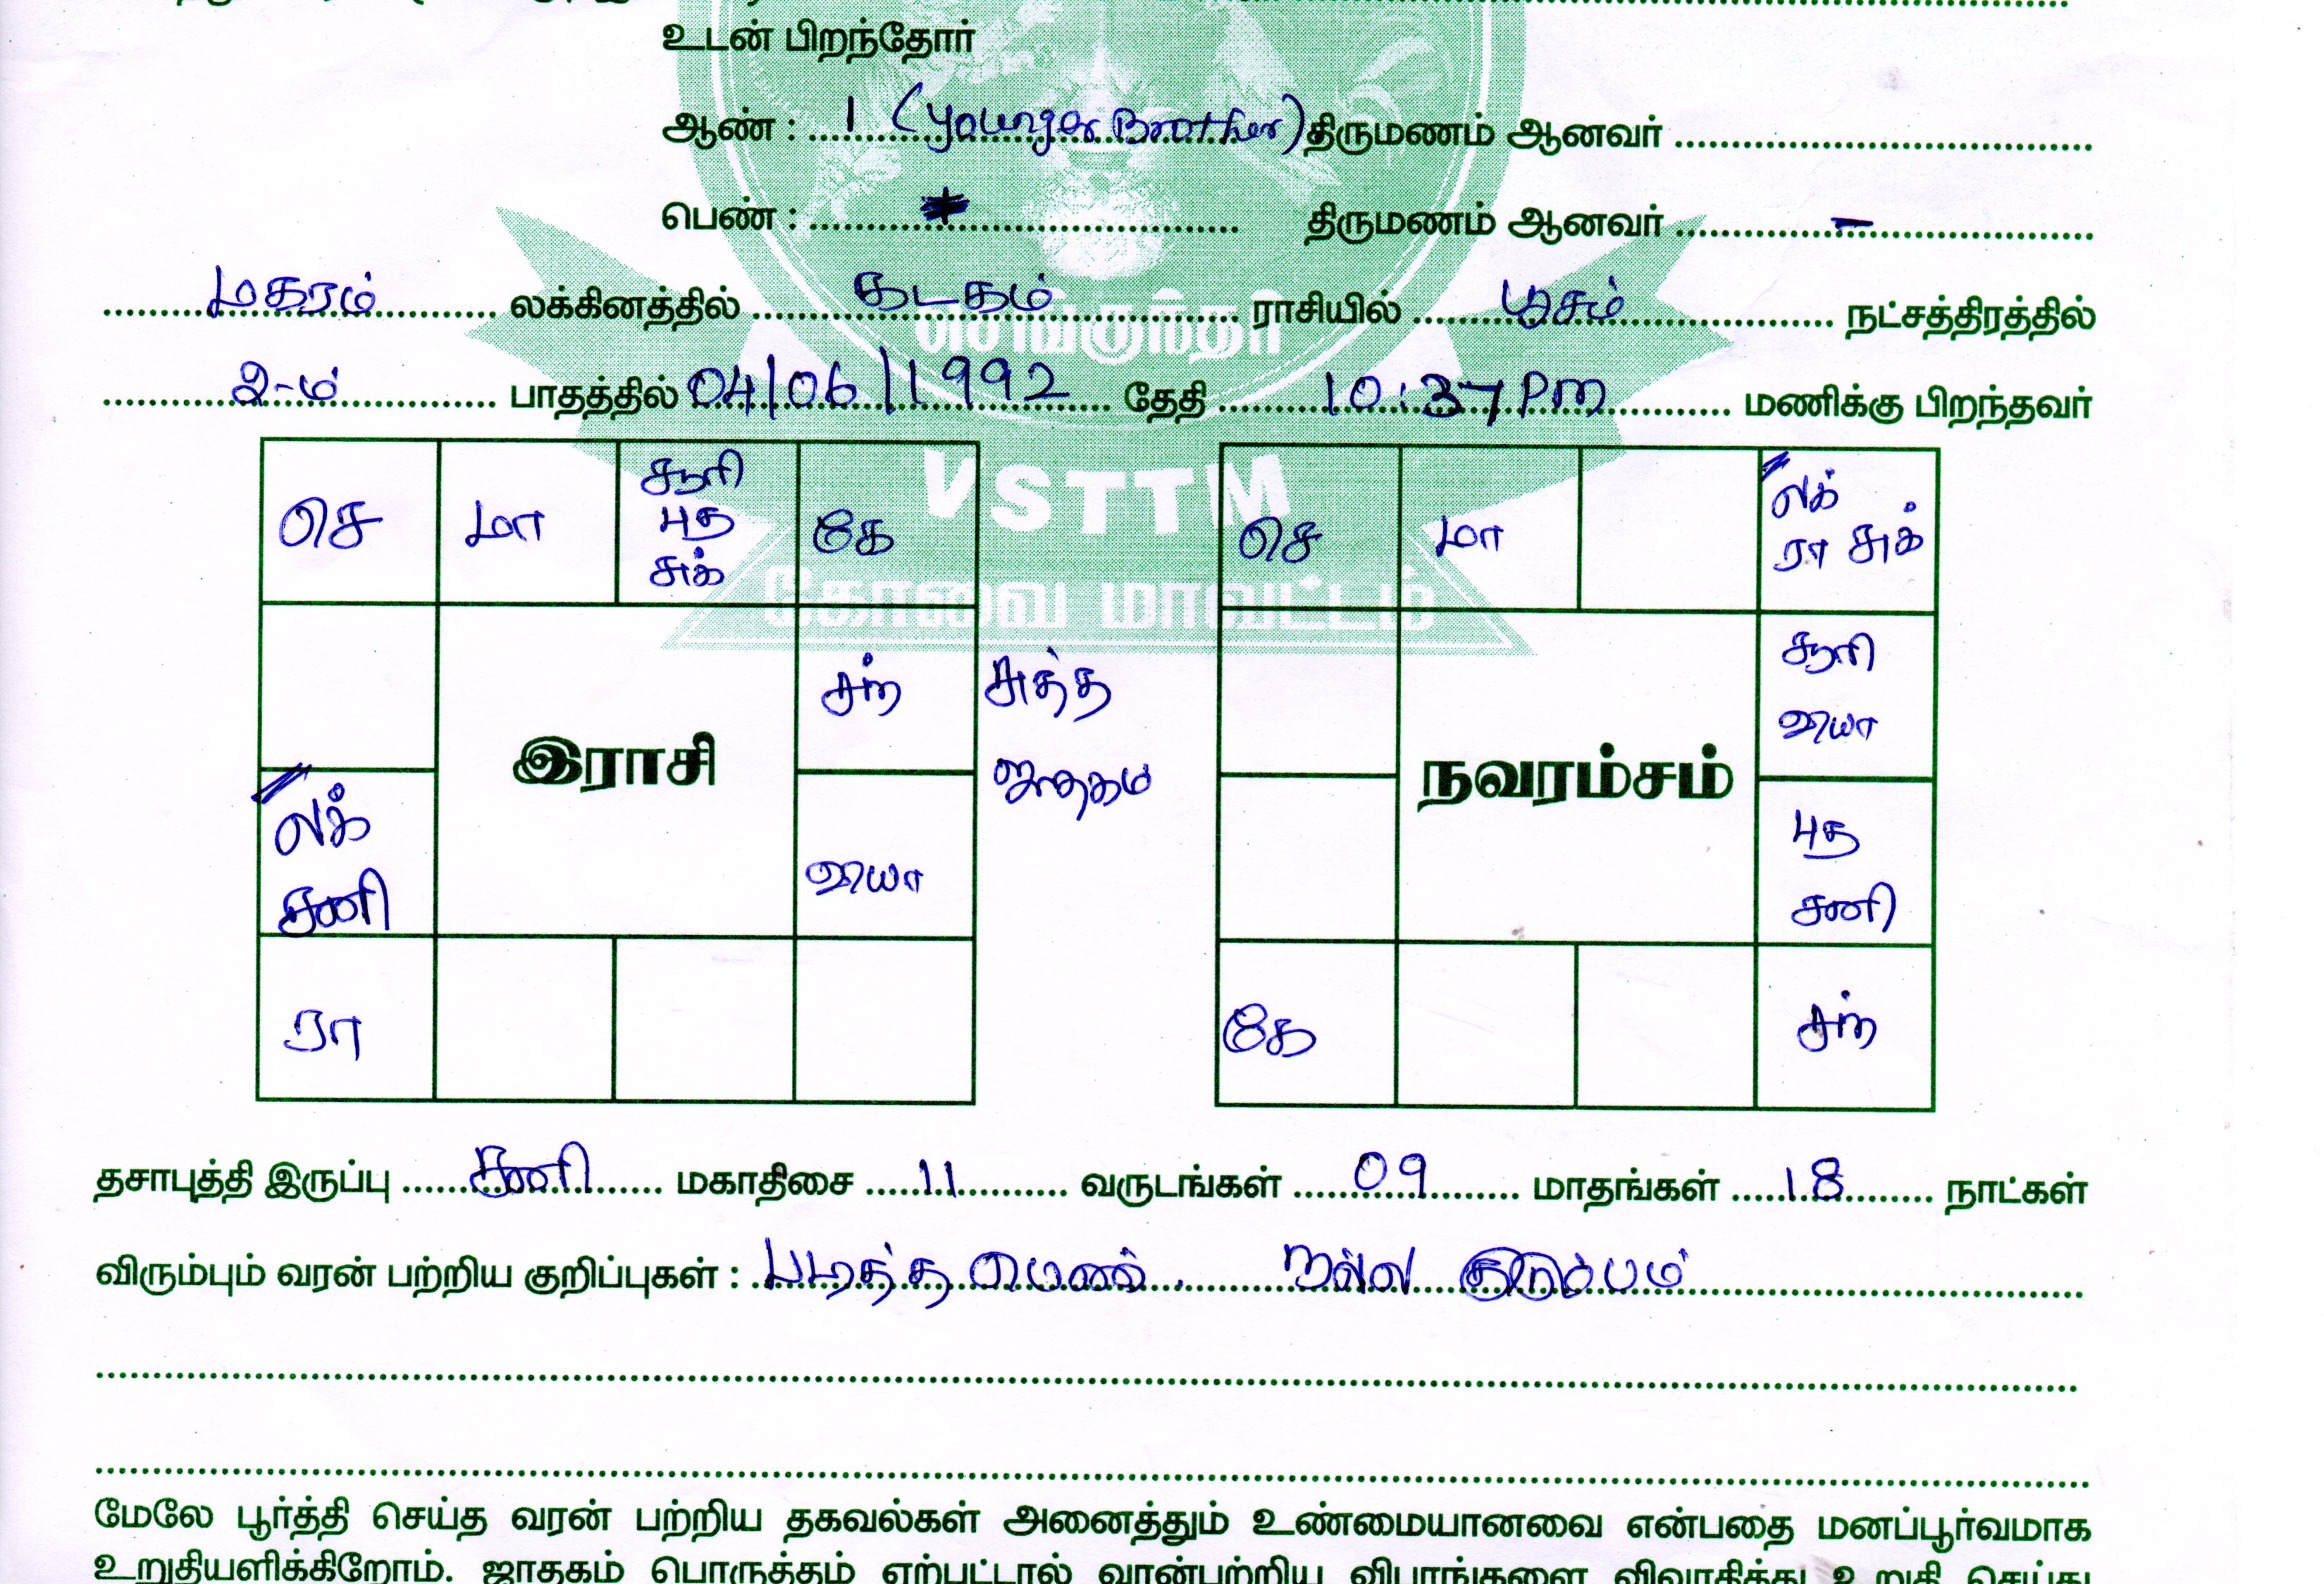 உடன் பிறந்தோர்
ஆண் : 1 (Younger Brother) திருமணம் ஆனவர்
பெண் : திருமணம் ஆனவர் -
மகரம் லக்கினத்தில் கடகம் ராசியில் பூசம் நட்சத்திரத்தில்
செங்குந்தர்
2-ம் பாதத்தில் 04/06/1992 தேதி 10:37 PM மணிக்கு பிறந்தவர்
VSTTM
கோவை மாவட்டம்
செ மா சூரி புத சுக் கே
சந்
லக் சனி வியா
ரா
இராசி
சுத்த
ஜாதகம்
செ மா லக் ரா சுக்
சூரி வியா
புத சனி
கே சந்
நவரம்சம்
தசாபுத்தி இருப்பு சனி மகாதிசை 11 வருடங்கள் 09 மாதங்கள் 18 நாட்கள்
விரும்பும் வரன் பற்றிய குறிப்புகள் : படித்த பெண். நல்ல குடும்பம்
மேலே பூர்த்தி செய்த வரன் பற்றிய தகவல்கள் அனைத்தும் உண்மையானவை என்பதை மனப்பூர்வமாக
உறுதியளிக்கிறோம். ஜாதகம் பொருத்தம் ஏற்பட்டால் வரன்பற்றிய விபரங்களை விவாதித்து உறுதி செய்து